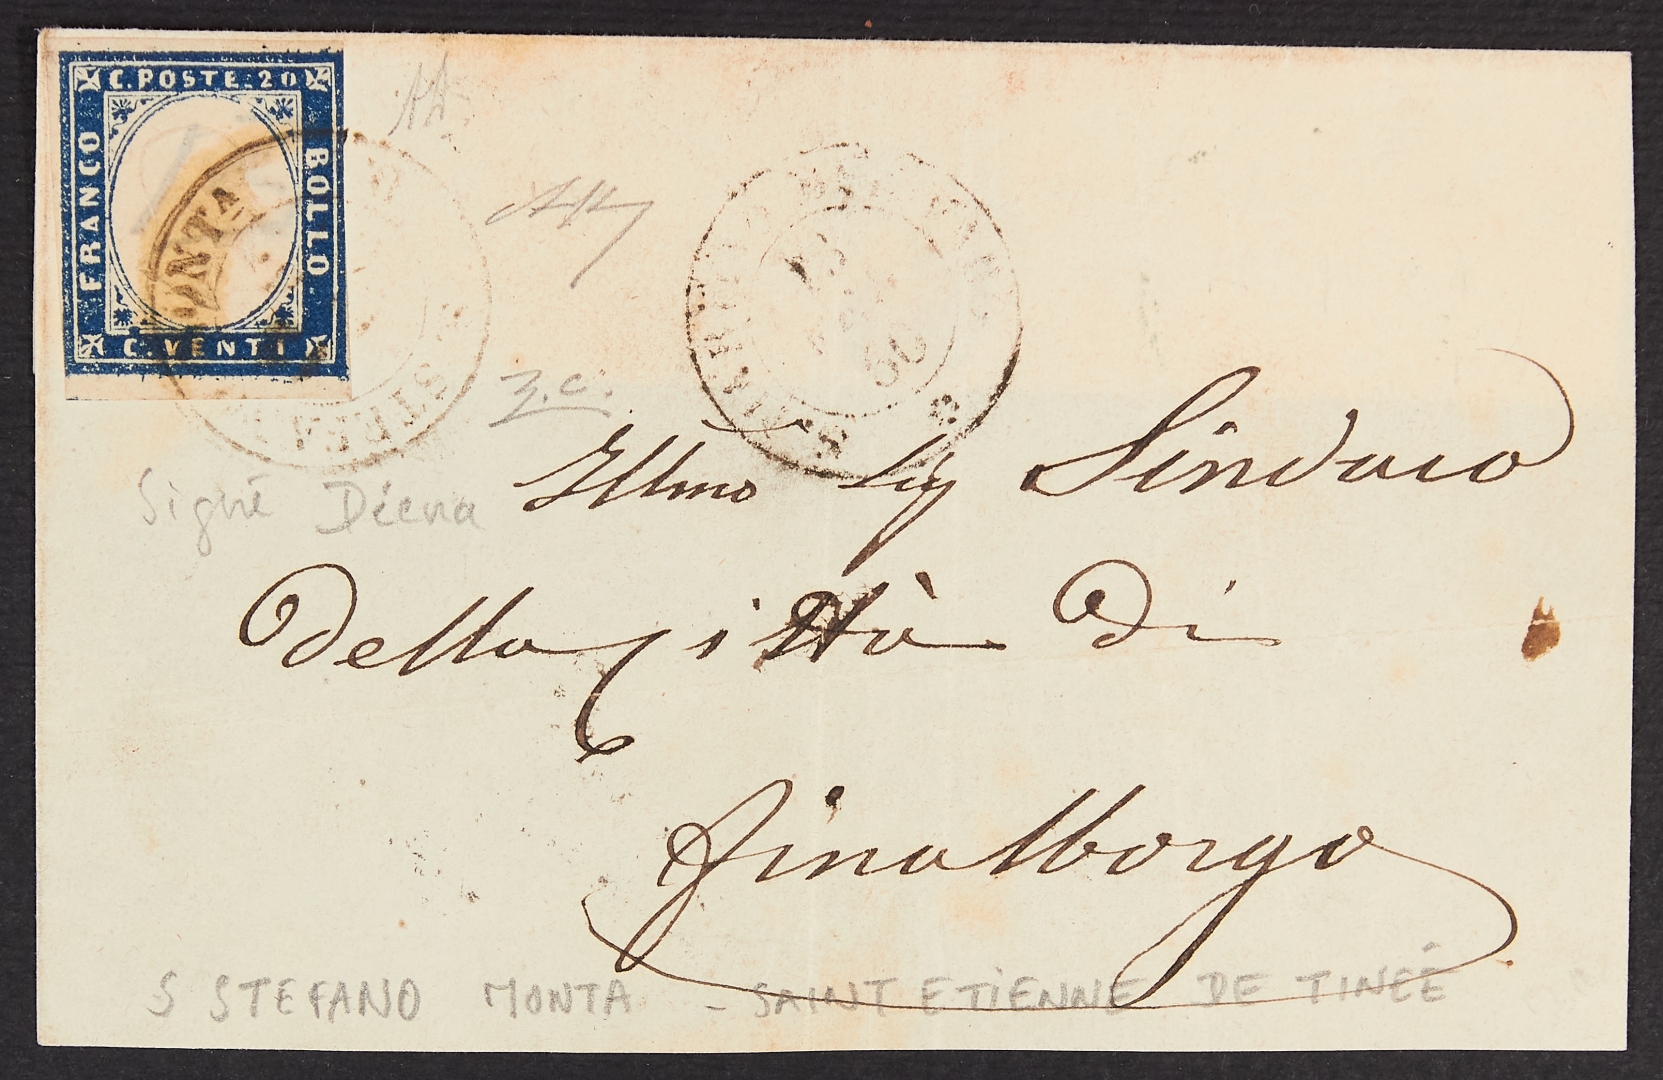 C. POSTE. 20
FRANCO
BOLLO
C. VENTI
MONTA
S. STEFA
3.c.
Signé Diena
Illmo Sig Sindaco
della Città di
Finalborgo
S STEFANO MONTA - SAINT ETIENNE DE TINEÉ